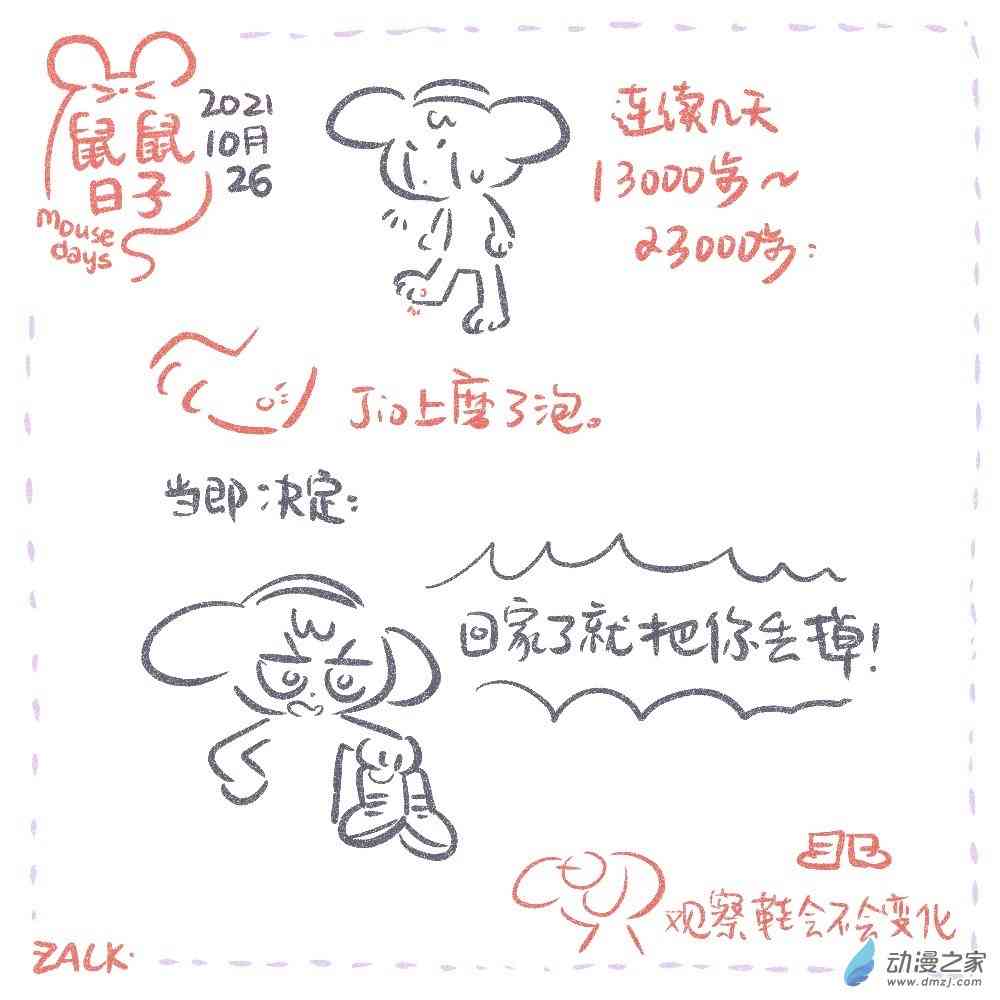 鼠鼠
日子
mouse
days
2021
10月
26
连续几天
13000步~
23000步:
Jio上磨了泡。
当即决定:
回家了就把你丢掉!
观察鞋会不会变化
ZALK.
动漫之家
www.dmzj.com